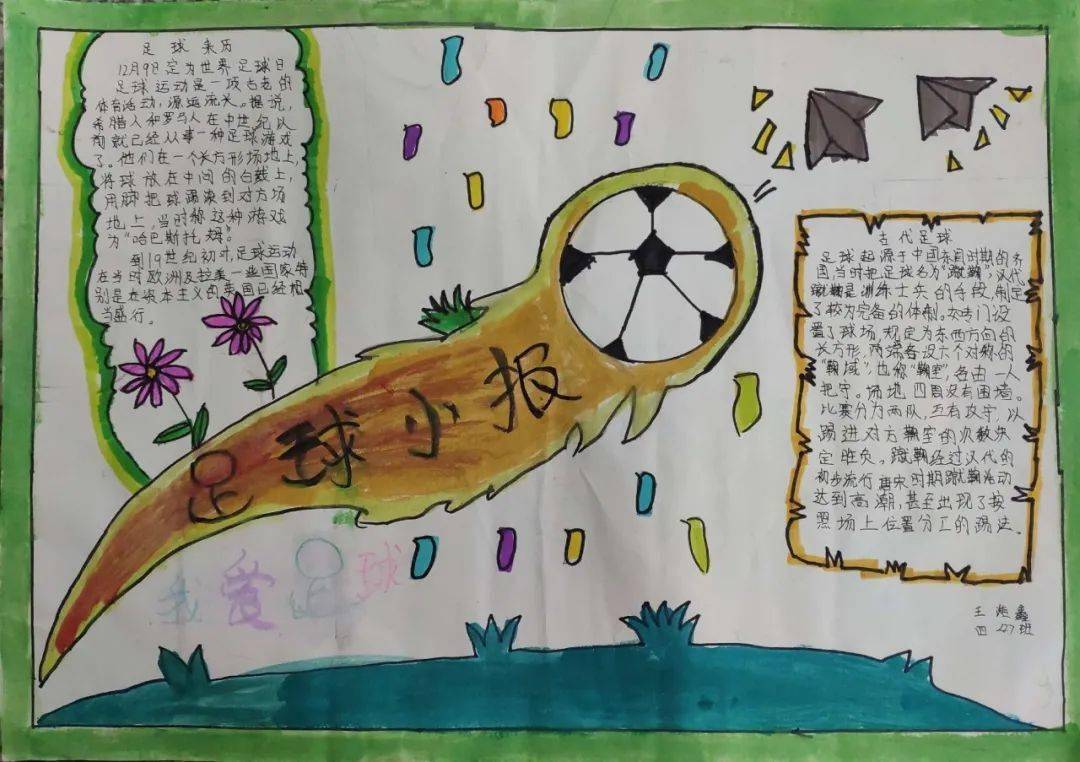 足球来历
12月9日定为世界足球日
足球运动是一项古老的
体育活动,源远流长。据说,
希腊人和罗马人在中世纪以
前就已经从事一种足球游戏
了。他们在一个长方形场地上,
将球放在中间的白线上,
用脚把球踢滚到对方场
地上,当时称这种游戏
为“哈巴斯托姆”。
到19世纪初叶,足球运动
在当时欧洲及拉美一些国家特
别是在资本主义的英国已经相
当盛行。
足球小报
我爱足球
古代足球
足球起源于中国东周时期的齐
国,当时把足球名为“蹴鞠”,汉代
蹴鞠是训练士兵的手段,制定
了较为完备的体制。如专门设
置了球场,规定为东西方向的
长方形,两端各设六个对称的
“鞠域”,也称“鞠室”,各由一人
把守。场地四周设有围墙。
比赛分为两队,互有攻守,以
踢进对方鞠室的次数决
定胜负。蹴鞠经过汉代的
初步流行,唐宋时期蹴鞠活动
达到高潮,甚至出现了按
照场上位置分工的踢法。
王 鑫
四 班